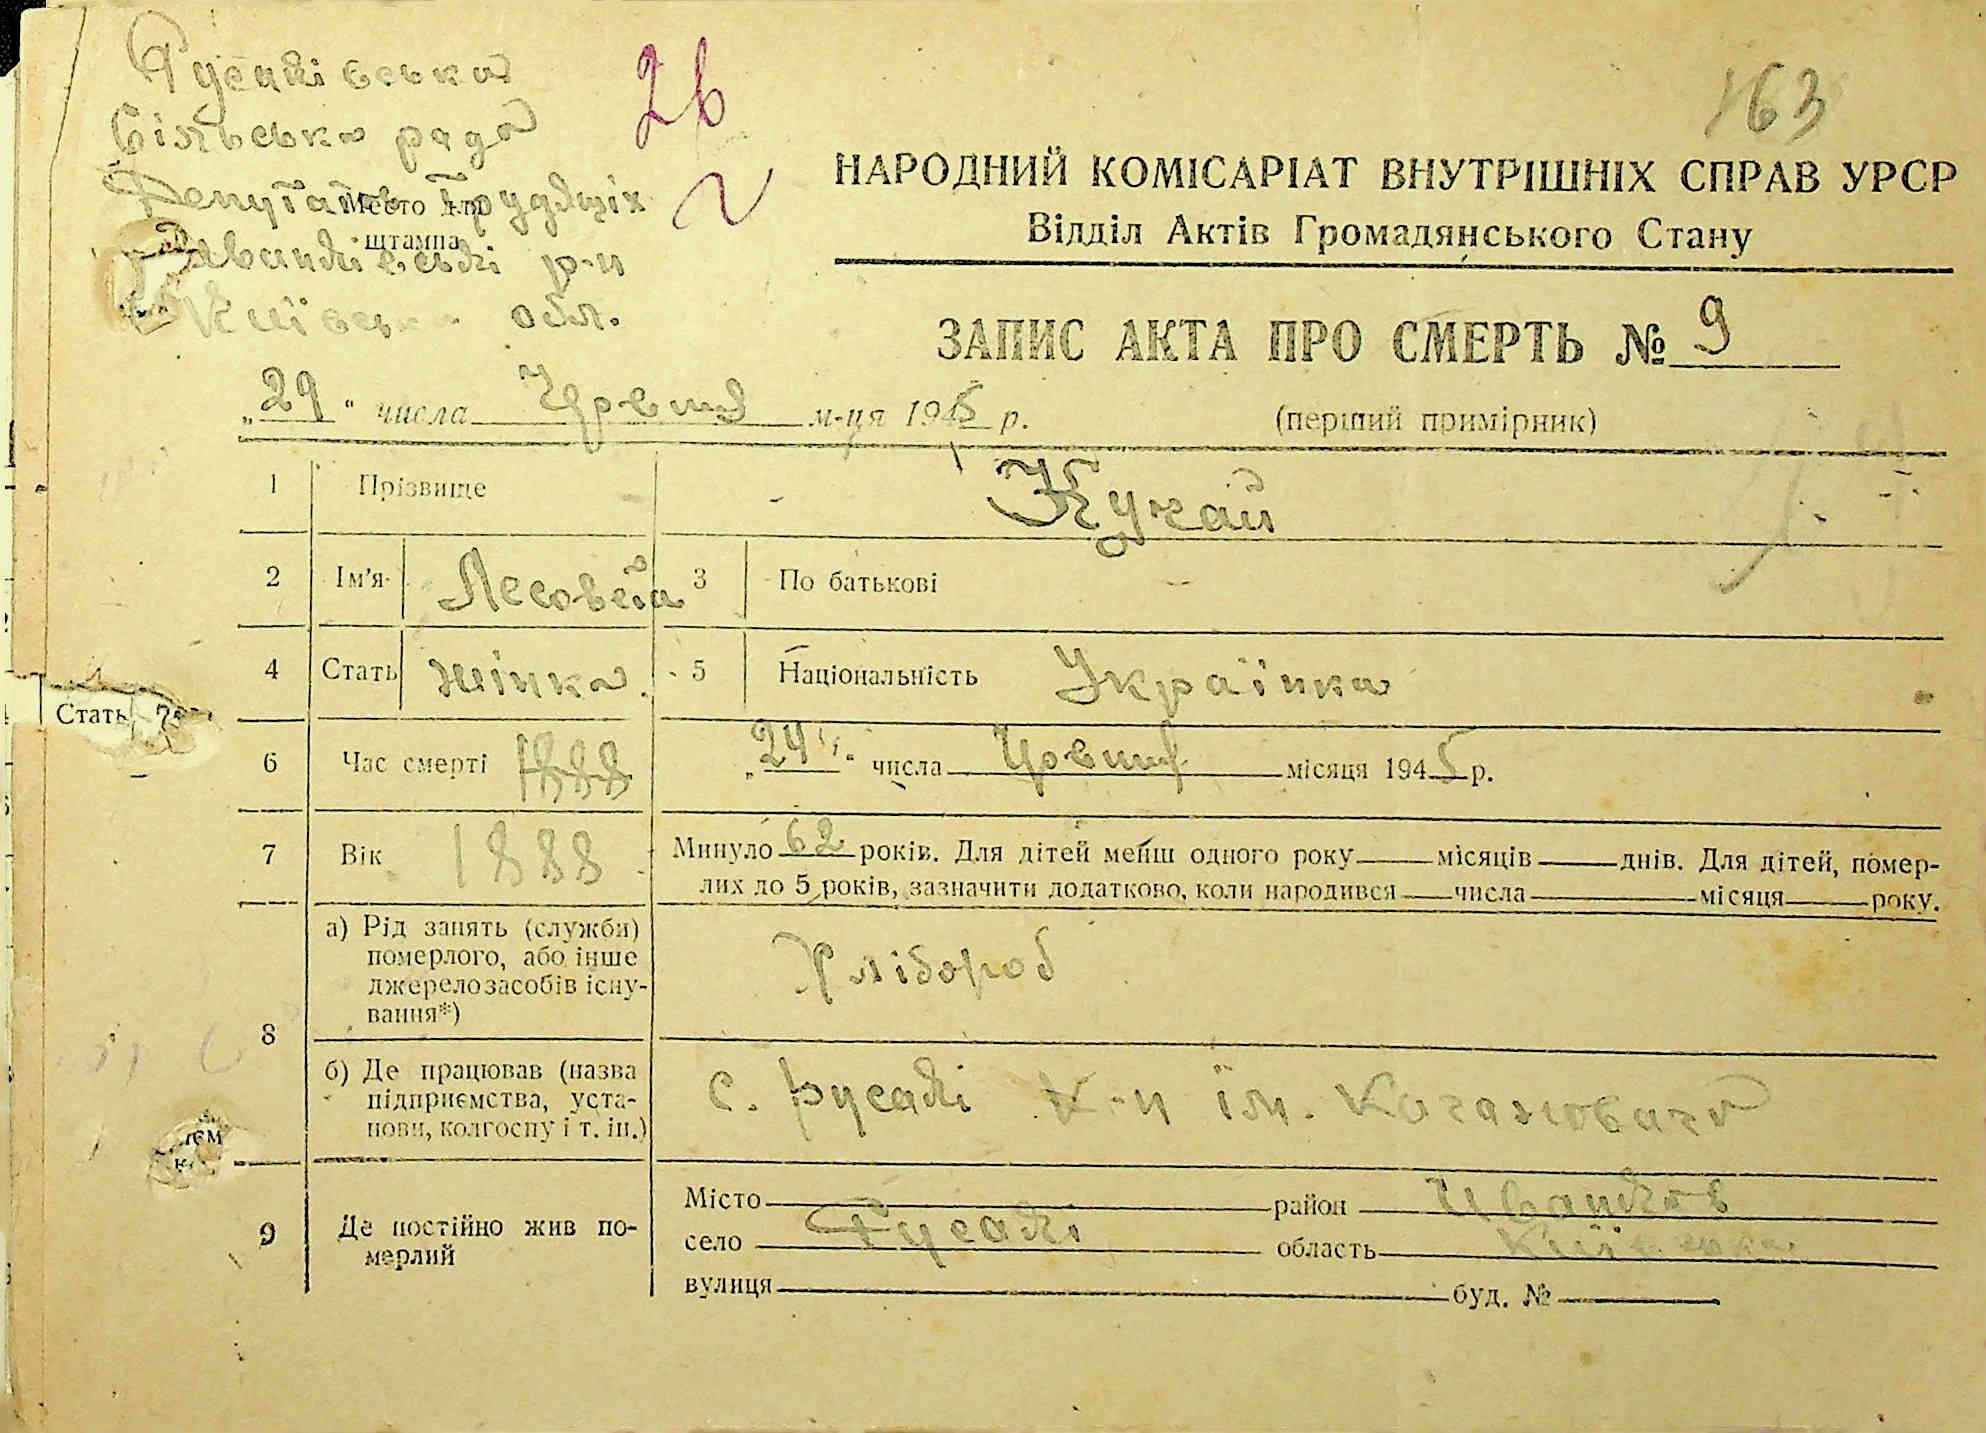 Русакіська
Сільська рада
Депутатів Трудящіх
Місто для
штампа
Іванківській р-н
Київська обл.
2в
163
НАРОДНИЙ КОМІСАРІАТ ВНУТРІШНІХ СПРАВ УРСР
Відділ Актів Громадянського Стану
ЗАПИС АКТА ПРО СМЕРТЬ № 9
„29“ числа м-ця 1945 р. (перший примірник)
1 Прізвище Кучай
2 Ім'я 3 По батькові
4 Стать жінка. 5 Національність Українка
Стать
6 Час смерті 1888 „29“ числа місяця 1945 р.
7 Вік 1888 Минуло 62 років. Для дітей менш одного року місяців днів. Для дітей, помер-
лих до 5 років, зазначити додатково, коли народився числа місяця року.
8
а) Рід занять (служби)
померлого, або інше
джерело засобів існу-
вання*)
Хлібороб
б) Де працював (назва
підприємства, уста-
нови, колгоспу і т. ін.)
с. Русакі к-п ім. Кагановича
9 Де постійно жив по-
мерлий
Місто район Иванков
село Русакі область Київська
вулиця буд. №